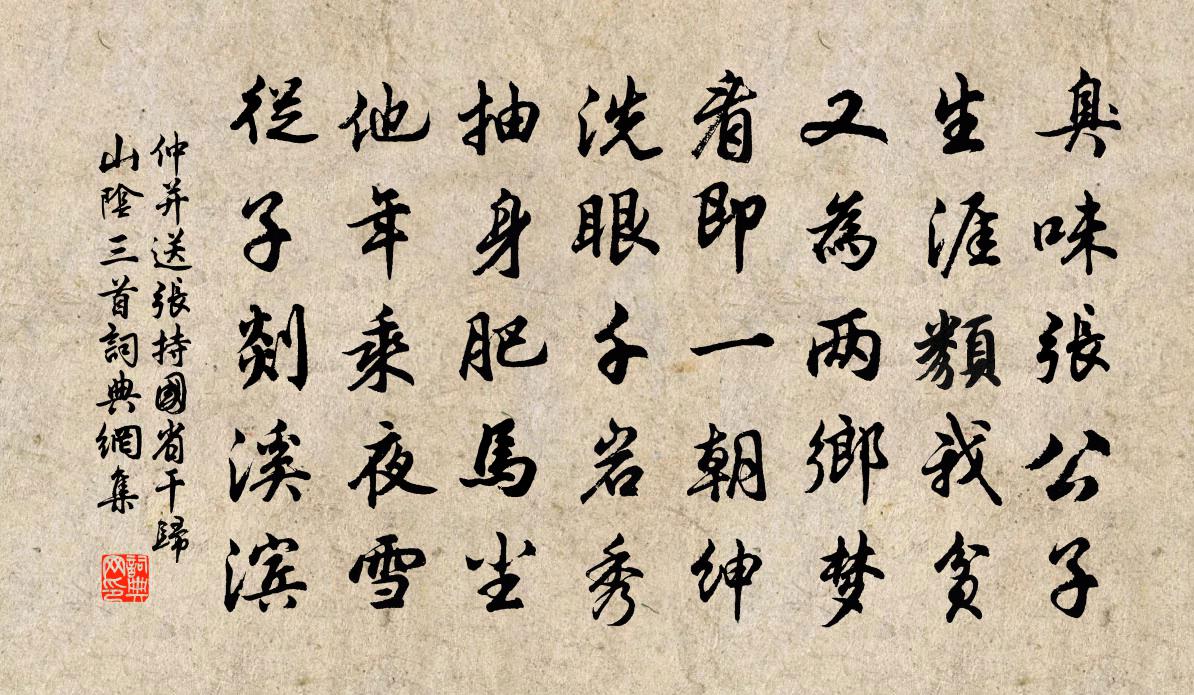 臭味張公子
生涯類我貧
又為两鄉梦
看即一朝紳
洗眼千岩秀
抽身肥馬尘
他年乘夜雪
從子剡溪滨
仲并送張持國省干歸
山陰三首詞典網集
詞典
网印